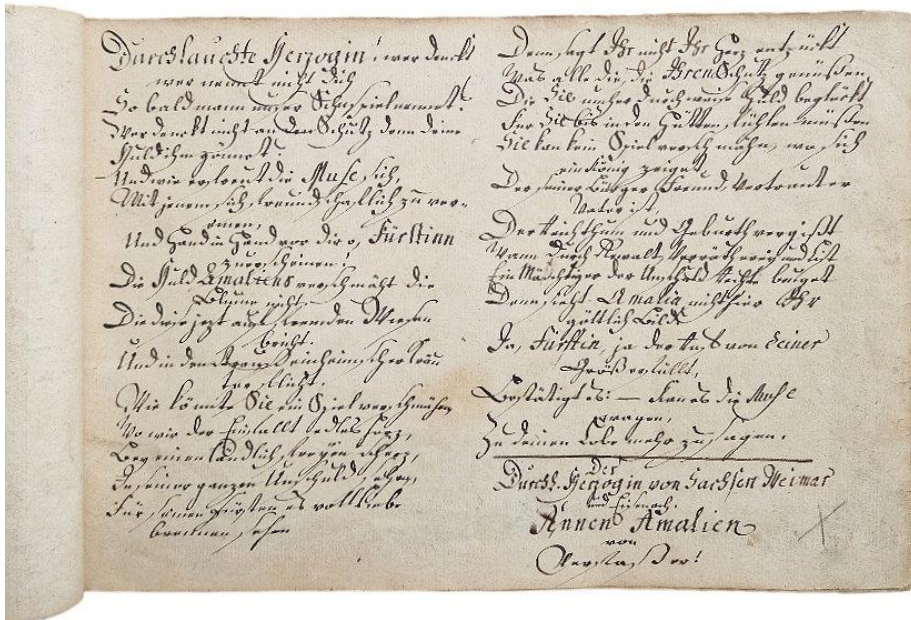 Durchlauchte Herzogin! wer denckt
wer nennt nicht dich
So bald mann unser Schauspiel nennet?
Wer denckt nicht an den Schutz denn deine
Huld ihm gönnet?
Und wie erfreut die Muse sich,
Mit jenem sich freundschaftlich zu ver-
einen,
Und Hand in Hand vor dir o, Fürstinn
zu erscheinen!
Die Huld Amaliens verschmäht die
Blume nicht,
Die diese jezt auf fremden Wiesen
bricht.
Und in den Kranz einheimscher Kräu
ter flicht.
Wie könnte Sie ein Spiel verschmähen
Wo wir der Einfallt edles Herz,
Bey einem ländlich freyen Scherz,
In seiner ganzen Unschuld sehen,
Für seinen Fürsten es voll Liebe
brennen sehen
Denn sagt Ihr nicht Ihr Herz entzückt
Was alle die, die Ihren Schutz genüßen
Die Sie umher durch weise Huld beglückt
Für Sie bis in den Hütten fühlen müßen
Sie kan kein Spiel verschmähn, wo sich
ein König zeiget,
Der seiner Bürger Freund, Vertrauter
Vater ist,
Der Reichthum und Geburth vergißt
Wann durch Gewalt, Verrätherey und List
Ein Mächtiger der Unschuld Rechte beuget
Denn sieht Amalia nicht hier Ihr
göttlich Bild?
Ja, Fürstin ja der Ruf von Deiner
Größ erfüllt,
Bestätigt es: — Kan es die Muse
wagen,
Zu deinem Lobe mehr zu sagen.
Der
Durchl. Herzogin von Sachsen Weimar
und Eisenach.
Annen Amalien
von
Verfaßer!